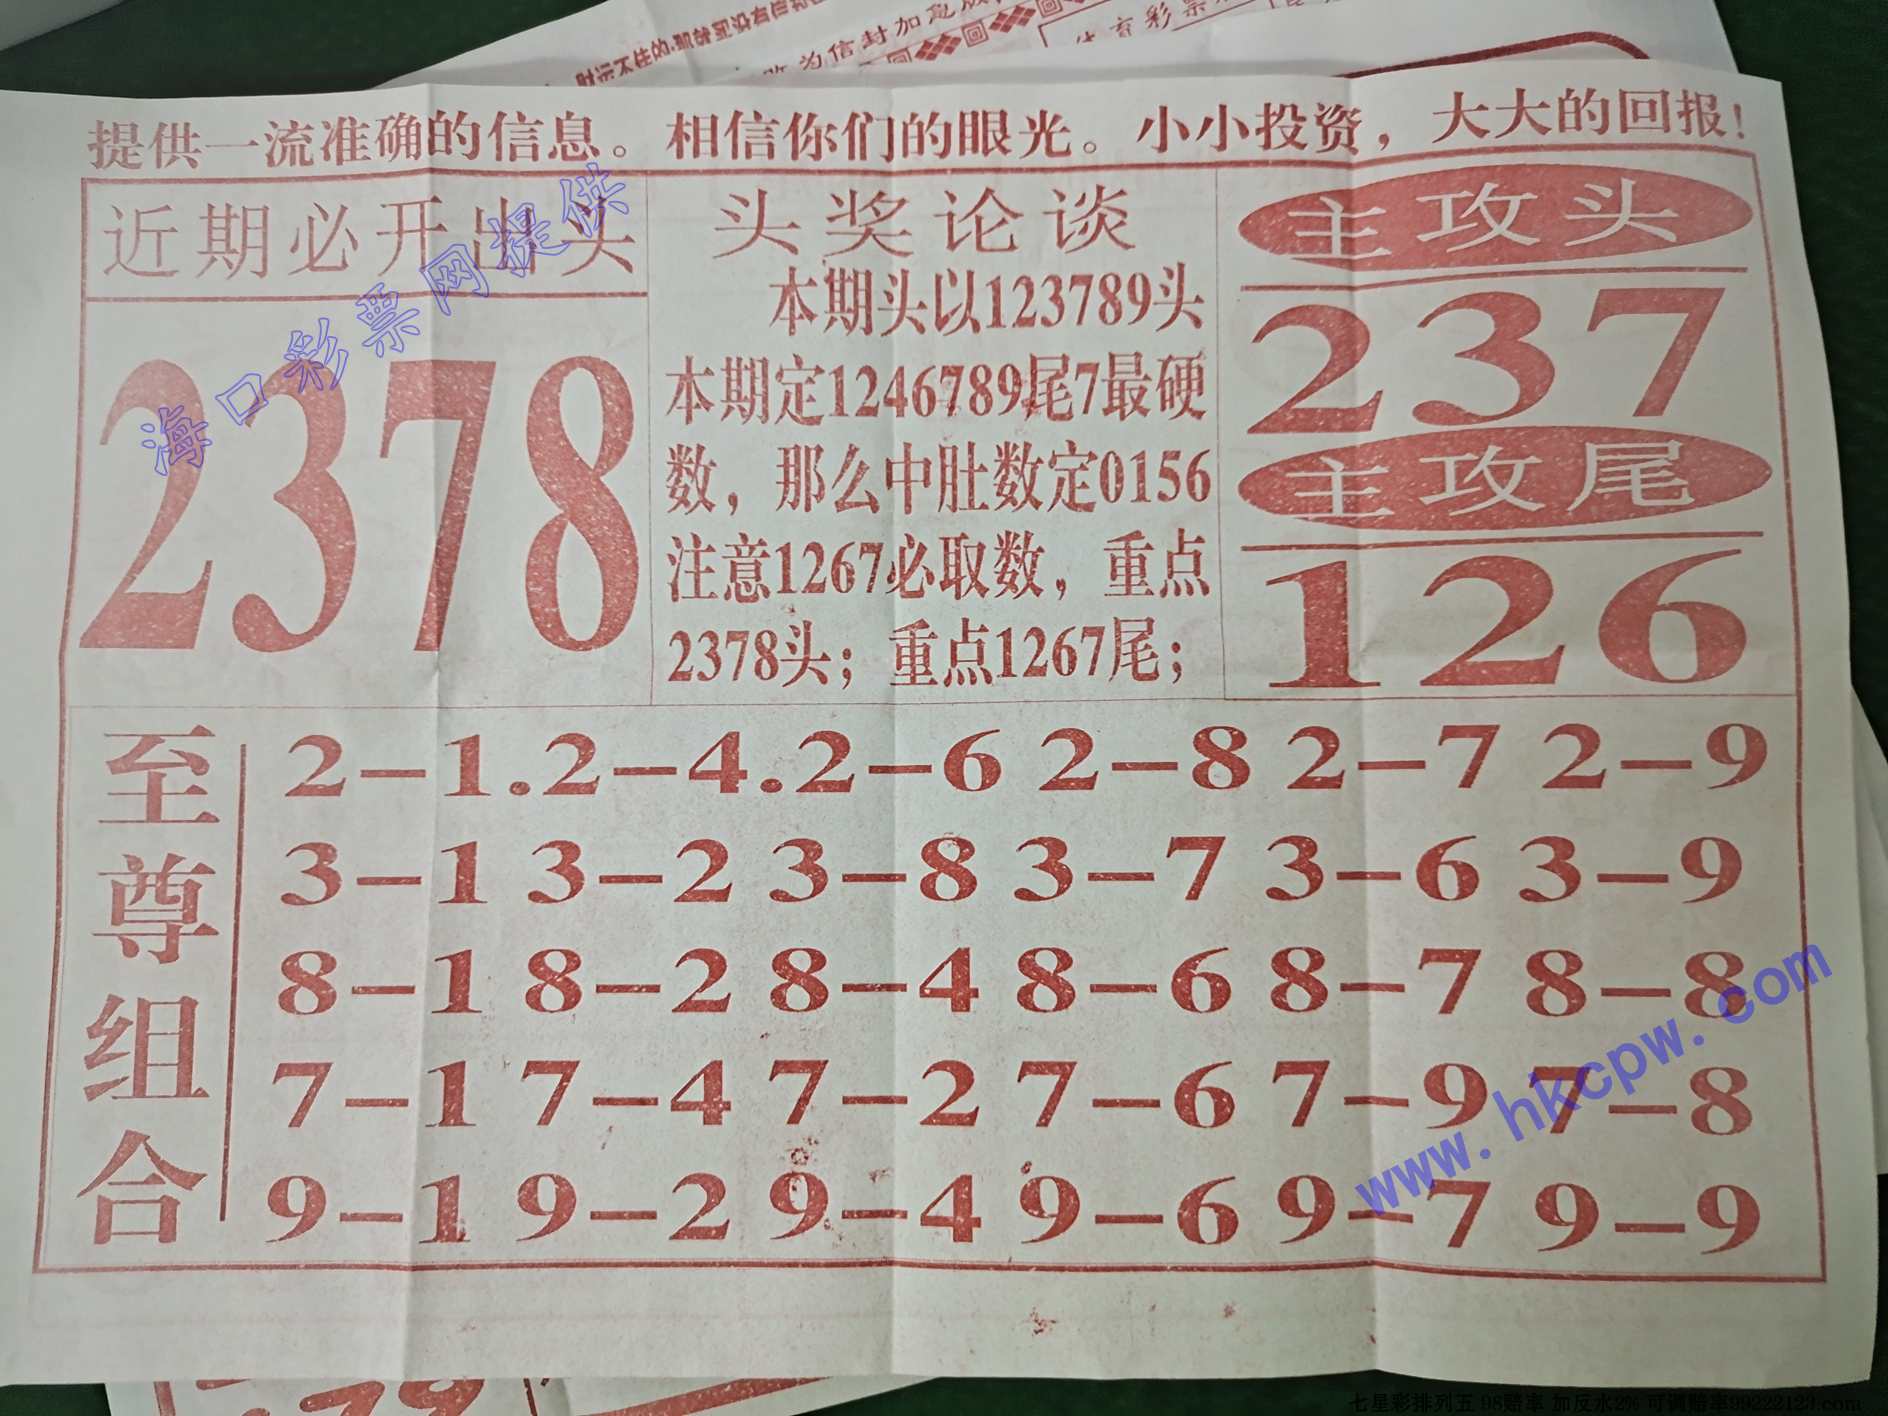 时运不佳的
改为信封加急
体育彩票
提供一流准确的信息。相信你们的眼光。小小投资，大大的回报！
近期必开出头
2378
头奖论谈
本期头以123789头
本期定1246789尾7最硬
数，那么中肚数定0156
注意1267必取数，重点
2378头；重点1267尾；
主攻头
237
主攻尾
126
至尊组合
2-1.2-4.2-6 2-8 2-7 2-9
3-1 3-2 3-8 3-7 3-6 3-9
8-1 8-2 8-4 8-6 8-7 8-8
7-1 7-4 7-2 7-6 7-9 7-8
9-1 9-2 9-4 9-6 9-7 9-9
海口彩票网提供
www.hkcpw.com
七星彩排列五 98赔率 加反水2% 可调赔率99222123.com